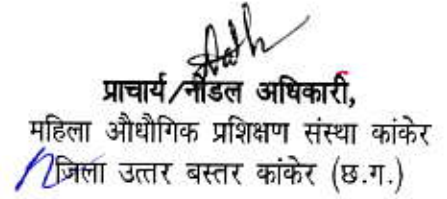 प्राचार्य/नोडल अधिकारी,
महिला औधौगिक प्रशिक्षण संस्था कांकेर
जिला उत्तर बस्तर कांकेर (छ.ग.)